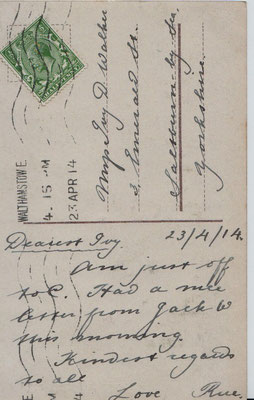 WALTHAMSTOW E.
4. 15 PM
23 APR 14
Miss Ivy D. Walker
3, Emerald St.
Saltburn-by-Sea
Yorkshire.
Dearest Ivy. 23/4/14.
Am just off
to C. Had a nice
letter from Jack W
this morning.
Kindest regards
to all
Love Rue.